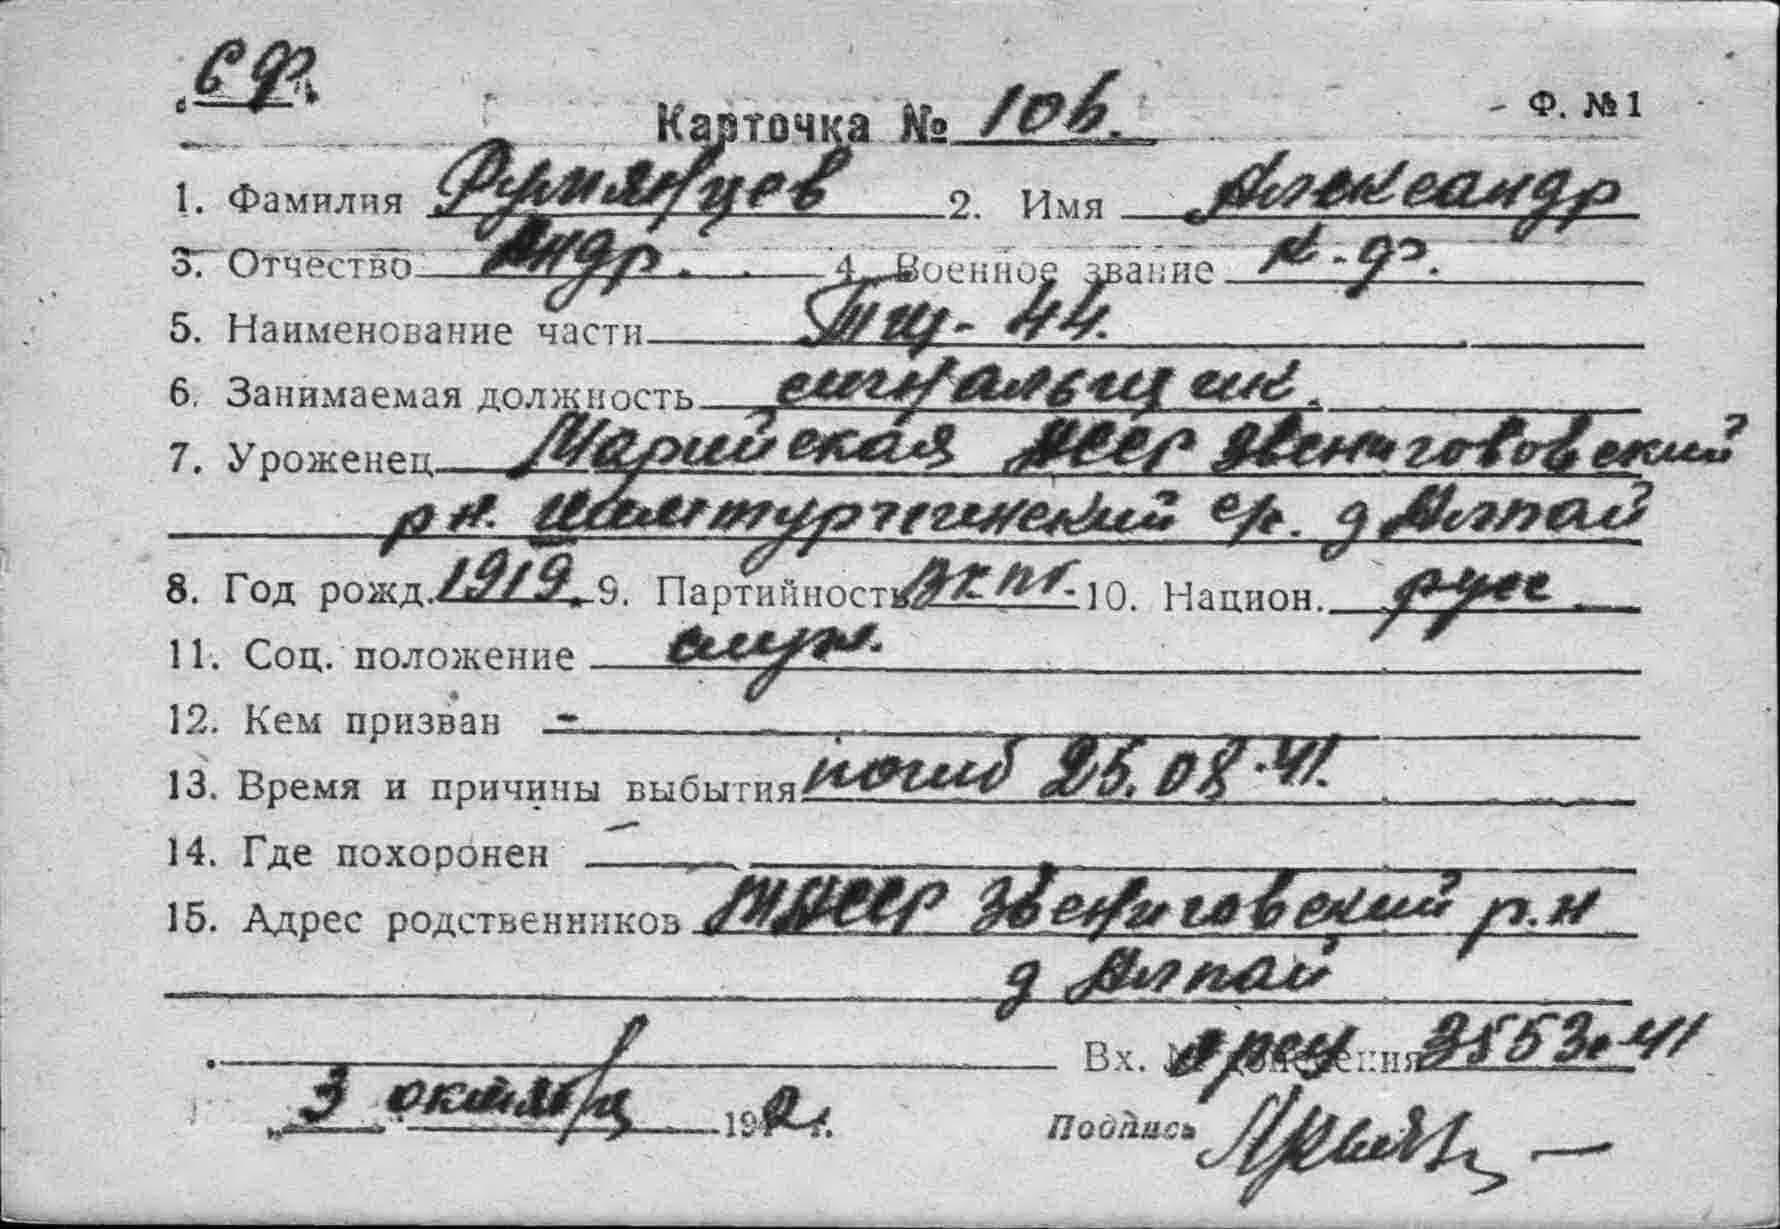 СФ.
Карточка № 106. Ф. №1
1. Фамилия Румянцев 2. Имя Александр
3. Отчество Андр. 4. Военное звание к.ф.
5. Наименование части Тщ-44.
6. Занимаемая должность сигнальщик.
7. Уроженец Марийская АССР Звениговский
р н. с/с. д Алпай
8. Год рожд. 1919. 9. Партийность 10. Национ. русс
11. Соц. положение служ.
12. Кем призван -
13. Время и причины выбытия погиб 25.08.41.
14. Где похоронен —
15. Адрес родственников МАССР Звениговский р.н
д Алпай
Вх. № донесения
„3" октября 19 2 г.
Подпись